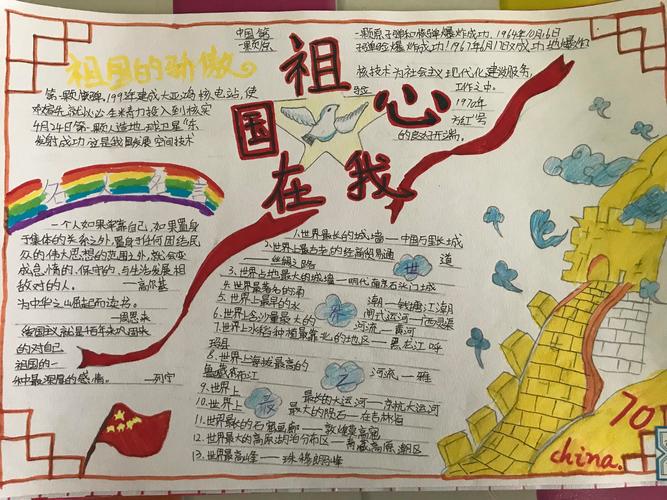 祖国在我心
祖国的骄傲
中国第
一颗原
一颗原子弹和核弹爆炸成功,1964年10月16日
弹爆炸成功!1967年6月17又成功地爆炸
核技术为社会主义现代化建设服务,
工作之中。
1970年
方红"号
的良好开端。
第一颗原弹,199年建成大亚湾核电站,使
4月24日第一颗人造地球卫星"东
发射成功这是我国发展空间技术
名人名言
一个人如果单靠自己,如果置身
于集体的关系之外,置身于任何团结民
众的伟大思想的范围之外,就会变
成怠惰的,保守的,与生活发展相
敌对的人。——高尔基
为中华之崛起而读书。
——周恩来
爱国主义就是千百年来巩固来
的对自己
祖国的一
种最深厚的感情。——列宁
世界之最
1.世界最长的城墙——中国万里长城
2.世界上最为老的经商贸易通道
——丝绸之路
3.世界上地最大的城墙——明代南京石头门城
4.世界最著名的涌潮——钱塘江潮
5.世界上最早的水闸式运河——西灵渠
6.世界上含沙量最大的河流——黄河
7.世界上水稻种植最靠北的地区——黑龙江呼
玛县
8.世界上海拔最高的河流——雅
鲁藏布江
9.世界上最长的大运河——京杭大运河
10.世界上最大的陨石——在吉林省
11.世界最长的石窟画廊——敦煌莫高窟
12.世界最大的高原湖泊分布区——青藏高原湖区
13.世界最高峰——珠穆朗玛峰
70
china.